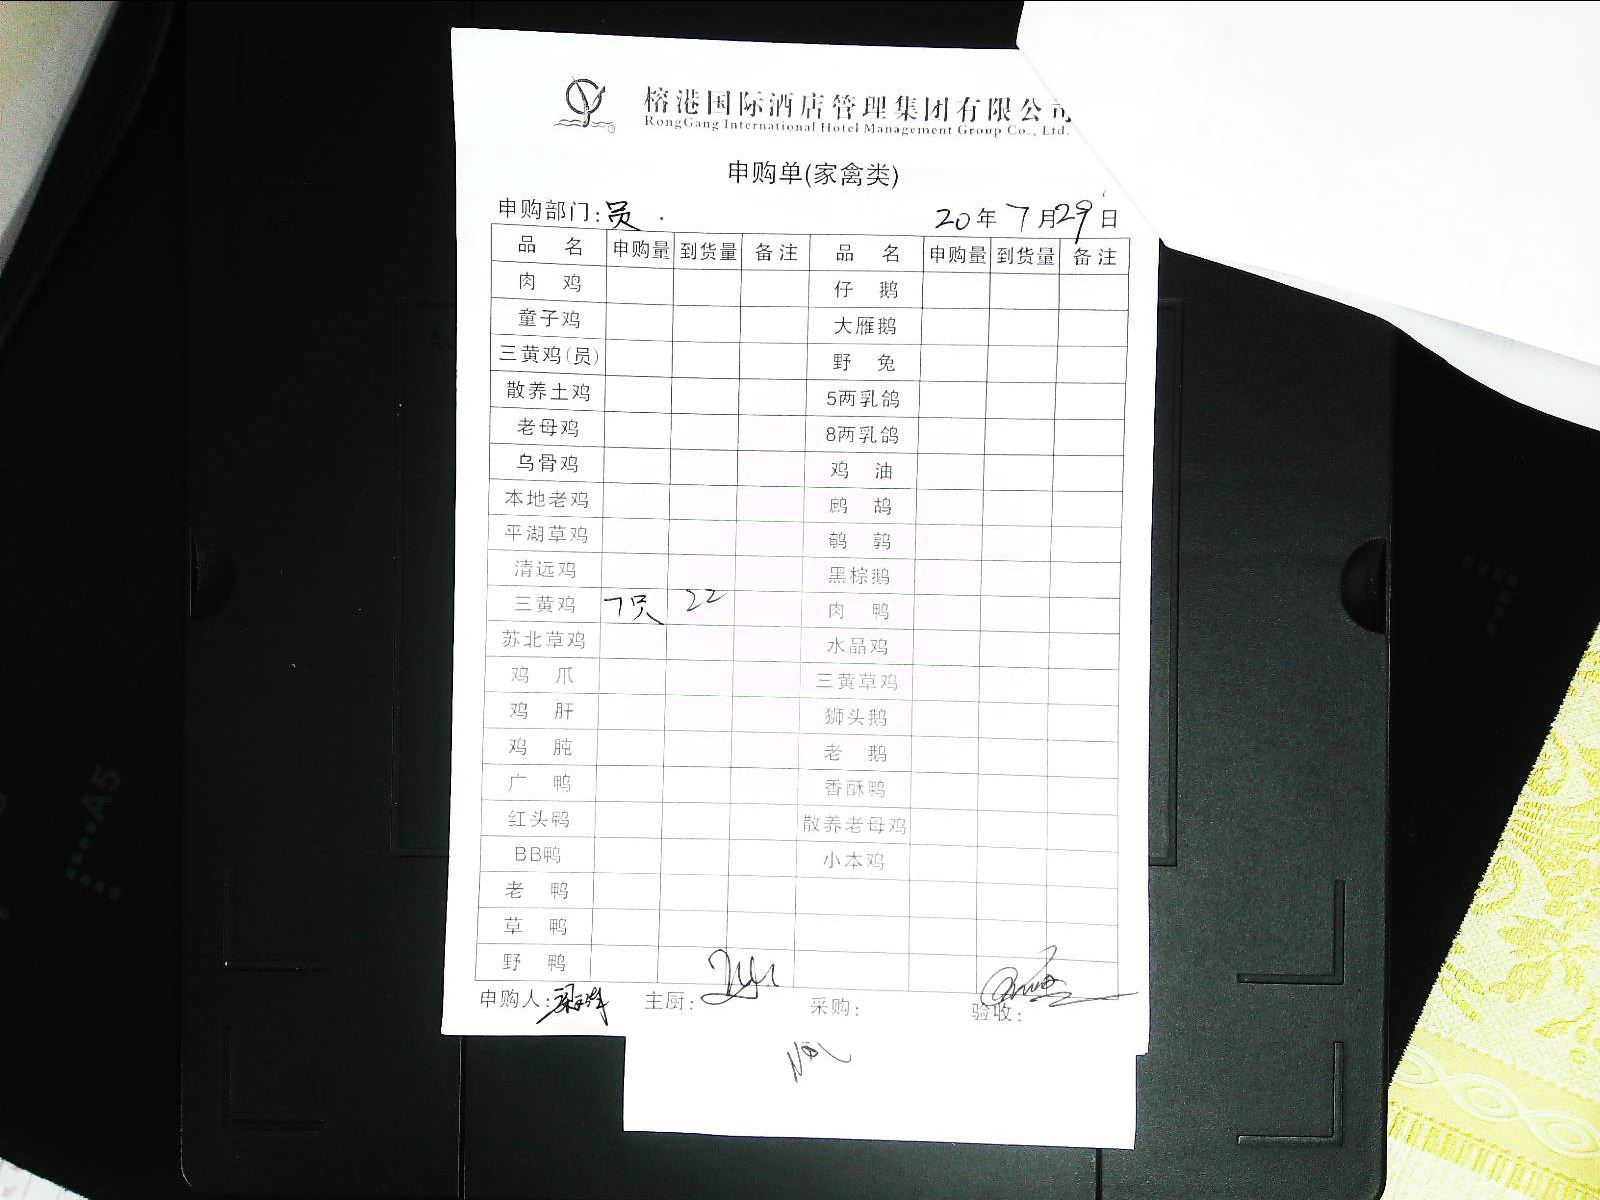 榕港国际酒店管理集团有限公司
RongGang International Hotel Management Group Co., Ltd.
申购单(家禽类)
申购部门:员 20年7月29日
品 名 申购量 到货量 备注 品 名 申购量 到货量 备注
肉 鸡 仔 鹅
童子鸡 大雁鹅
三黄鸡(员) 野 兔
散养土鸡 5两乳鸽
老母鸡 8两乳鸽
乌骨鸡 鸡 油
本地老鸡 鹧 鸪
平湖草鸡 鹌 鹑
清远鸡 黑棕鹅
三黄鸡 7只 22 肉 鸭
苏北草鸡 水晶鸡
鸡 爪 三黄草鸡
鸡 肝 狮头鹅
鸡 肫 老 鹅
广 鸭 香酥鸭
红头鸭 散养老母鸡
BB鸭 小本鸡
老 鸭
草 鸭
野 鸭
申购人: 主厨: 采购: 验收: